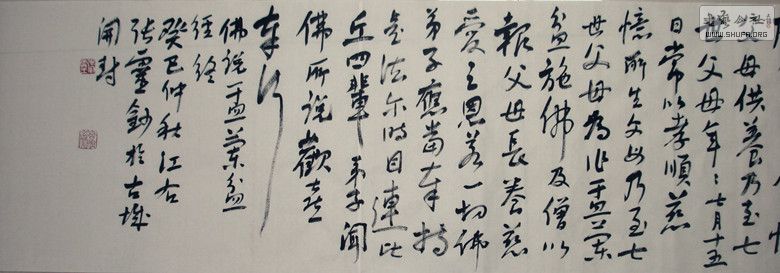 父母供養乃至七
世父母年々七月十五
日常以孝順慈
憶所生父母乃至七
世父母為作盂蘭
盆施佛及僧以
報父母長養慈
愛之恩若一切佛
弟子應當奉持
是法尔時目連比
丘四輩弟子聞
佛所說歡喜
奉行
佛說盂蘭盆
經終
癸巳仲秋江右
張靈鈔於古城
開封
WWW.SHUFA.ORG